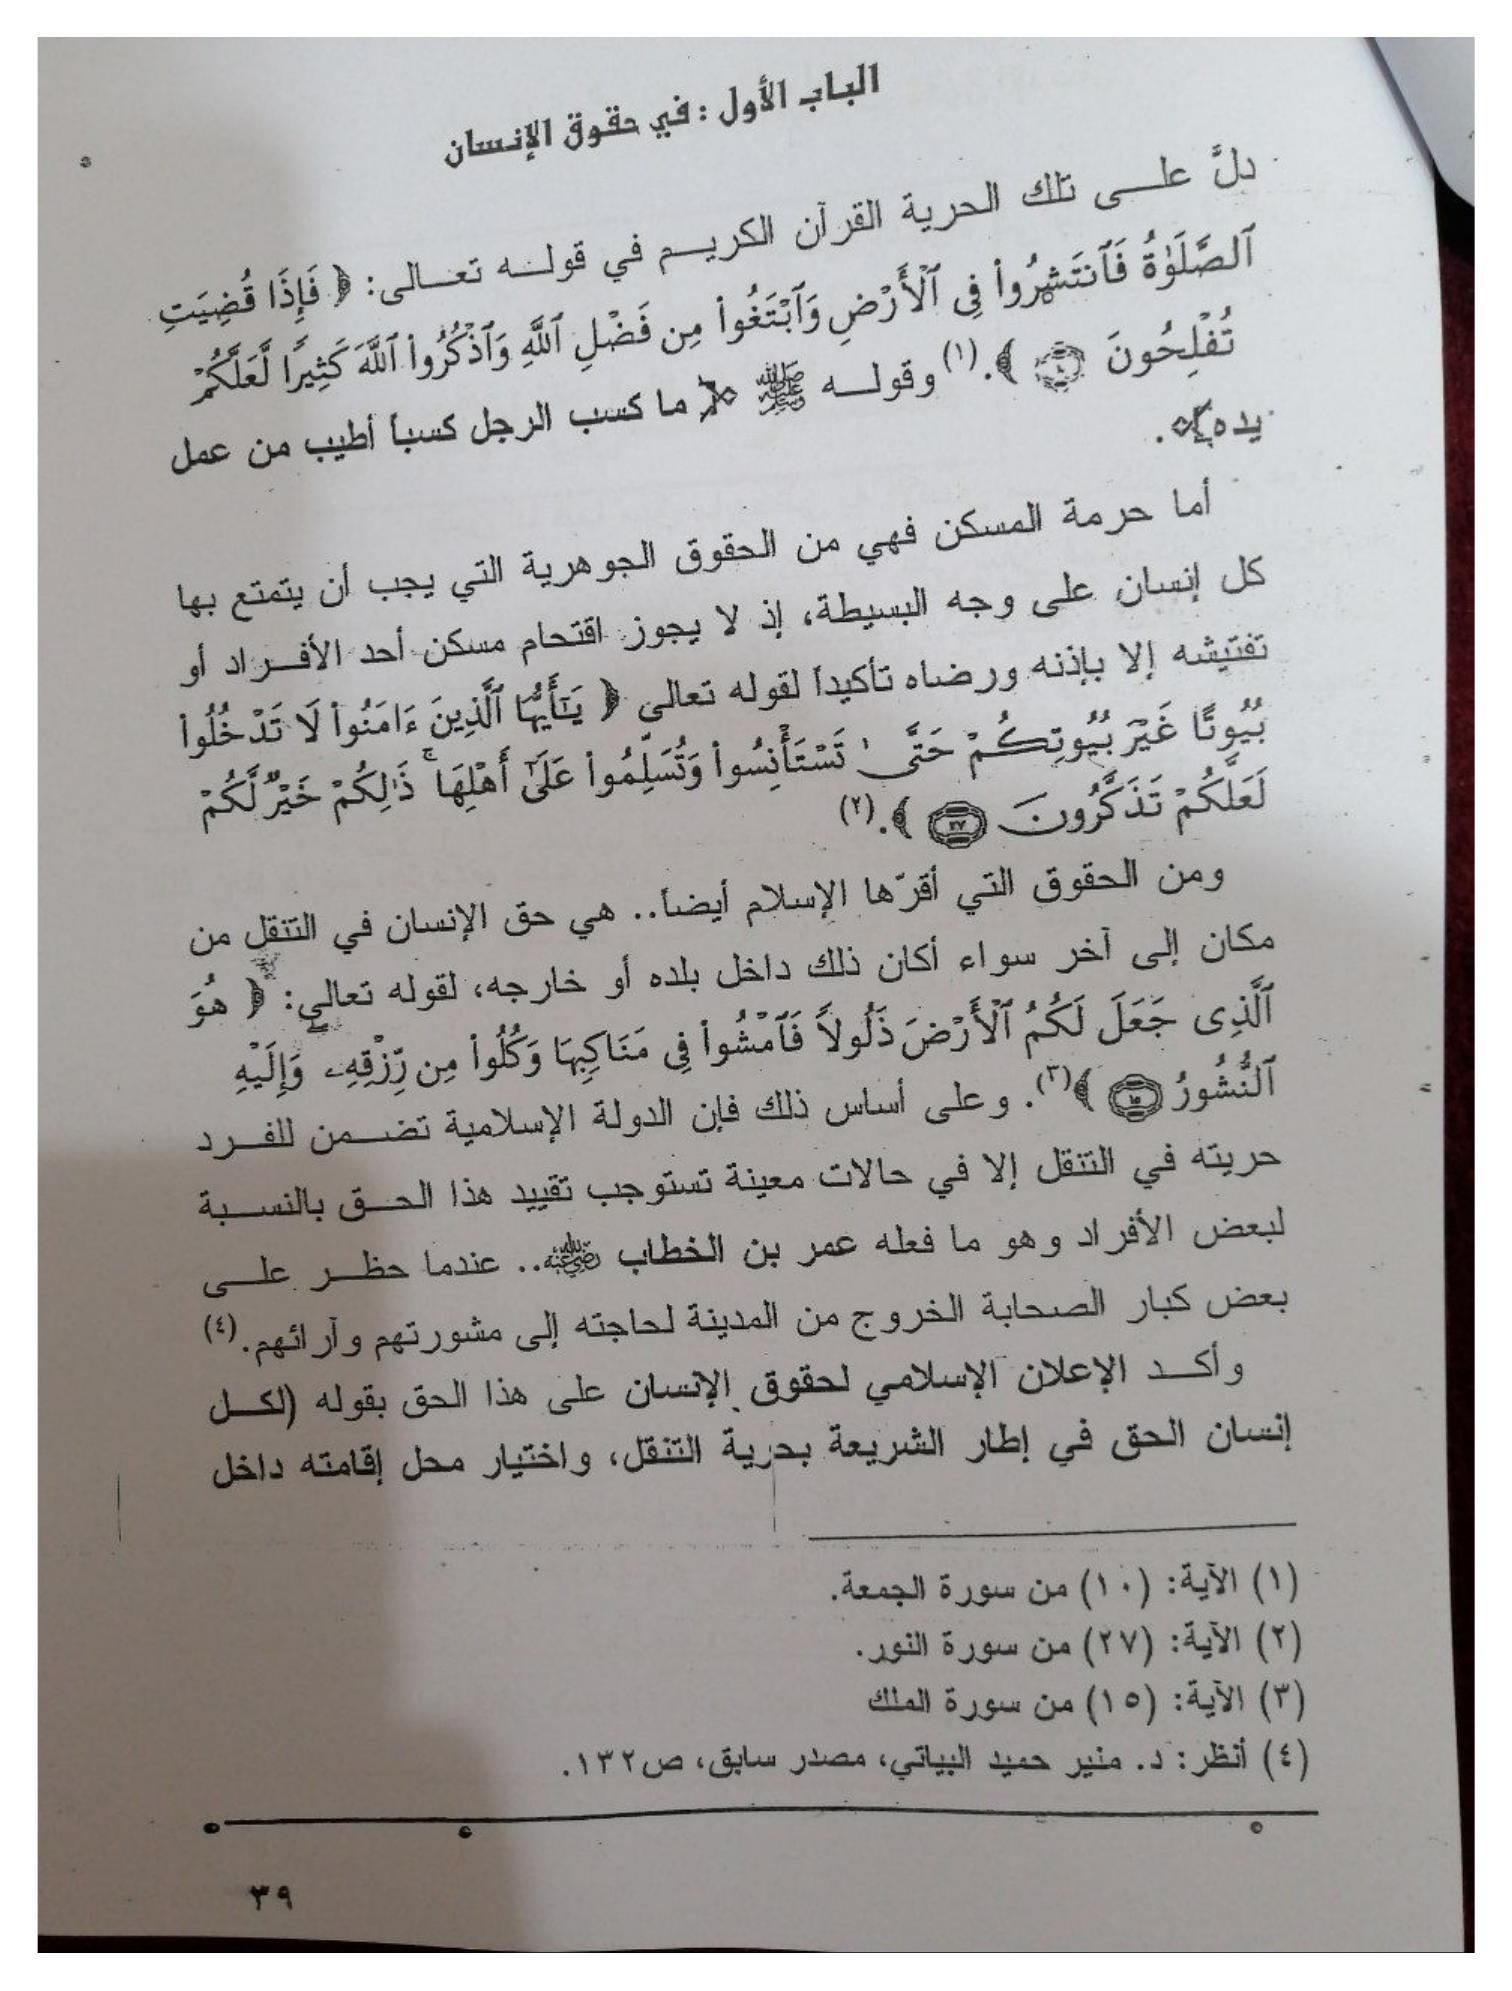 الباب الأول : في حقوق الإنسان
دلَّ على تلك الحرية القرآن الكريم في قوله تعالى: ﴿ فَإِذَا قُضِيَتِ
ٱلصَّلَوٰةُ فَٱنتَشِرُوا۟ فِى ٱلْأَرْضِ وَٱبْتَغُوا۟ مِن فَضْلِ ٱللَّهِ وَٱذْكُرُوا۟ ٱللَّهَ كَثِيرًا لَّعَلَّكُمْ
تُفْلِحُونَ ۝١٠ ﴾.(١) وقوله ﷺ ﴿ ما كسب الرجل كسباً أطيب من عمل
يده ﴾.
أما حرمة المسكن فهي من الحقوق الجوهرية التي يجب أن يتمتع بها
كل إنسان على وجه البسيطة، إذ لا يجوز اقتحام مسكن أحد الأفراد أو
تفتيشه إلا بإذنه ورضاه تأكيداً لقوله تعالى ﴿ يَـٰٓأَيُّهَا ٱلَّذِينَ ءَامَنُوا۟ لَا تَدْخُلُوا۟
بُيُوتًا غَيْرَ بُيُوتِكُمْ حَتَّىٰ تَسْتَأْنِسُوا۟ وَتُسَلِّمُوا۟ عَلَىٰٓ أَهْلِهَا ۚ ذَٰلِكُمْ خَيْرٌ لَّكُمْ
لَعَلَّكُمْ تَذَكَّرُونَ ۝٢٧ ﴾.(٢)
ومن الحقوق التي أقرّها الإسلام أيضاً.. هي حق الإنسان في التنقل من
مكان إلى آخر سواء أكان ذلك داخل بلده أو خارجه، لقوله تعالى: ﴿ هُوَ
ٱلَّذِى جَعَلَ لَكُمُ ٱلْأَرْضَ ذَلُولًا فَٱمْشُوا۟ فِى مَنَاكِبِهَا وَكُلُوا۟ مِن رِّزْقِهِۦ ۖ وَإِلَيْهِ
ٱلنُّشُورُ ۝١٥ ﴾(٣). وعلى أساس ذلك فإن الدولة الإسلامية تضمن للفرد
حريته في التنقل إلا في حالات معينة تستوجب تقييد هذا الحق بالنسبة
لبعض الأفراد وهو ما فعله عمر بن الخطاب رضي الله عنه.. عندما حظر على
بعض كبار الصحابة الخروج من المدينة لحاجته إلى مشورتهم وآرائهم.(٤)
وأكد الإعلان الإسلامي لحقوق الإنسان على هذا الحق بقوله (لكل
إنسان الحق في إطار الشريعة بحرية التنقل، واختيار محل إقامته داخل
(١) الآية: (١٠) من سورة الجمعة.
(٢) الآية: (٢٧) من سورة النور.
(٣) الآية: (١٥) من سورة الملك
(٤) أنظر: د. منير حميد البياتي، مصدر سابق، ص١٣٢.
٣٩